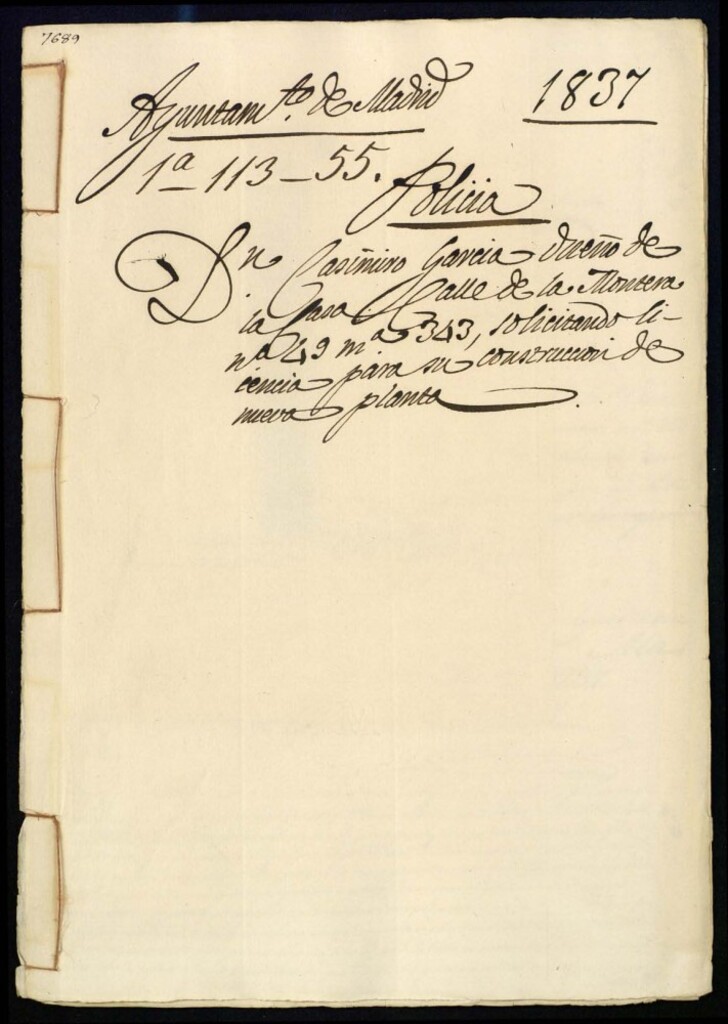 7689
Ayuntam.to de Madrid 1837
1a - 113 - 55.
Policia
Dn. Casimiro Garcia dueño de
la Casa Calle de la Montera
n.a 49 m.a 343, solicitando li-
cencia para su construccion de
nueva planta.